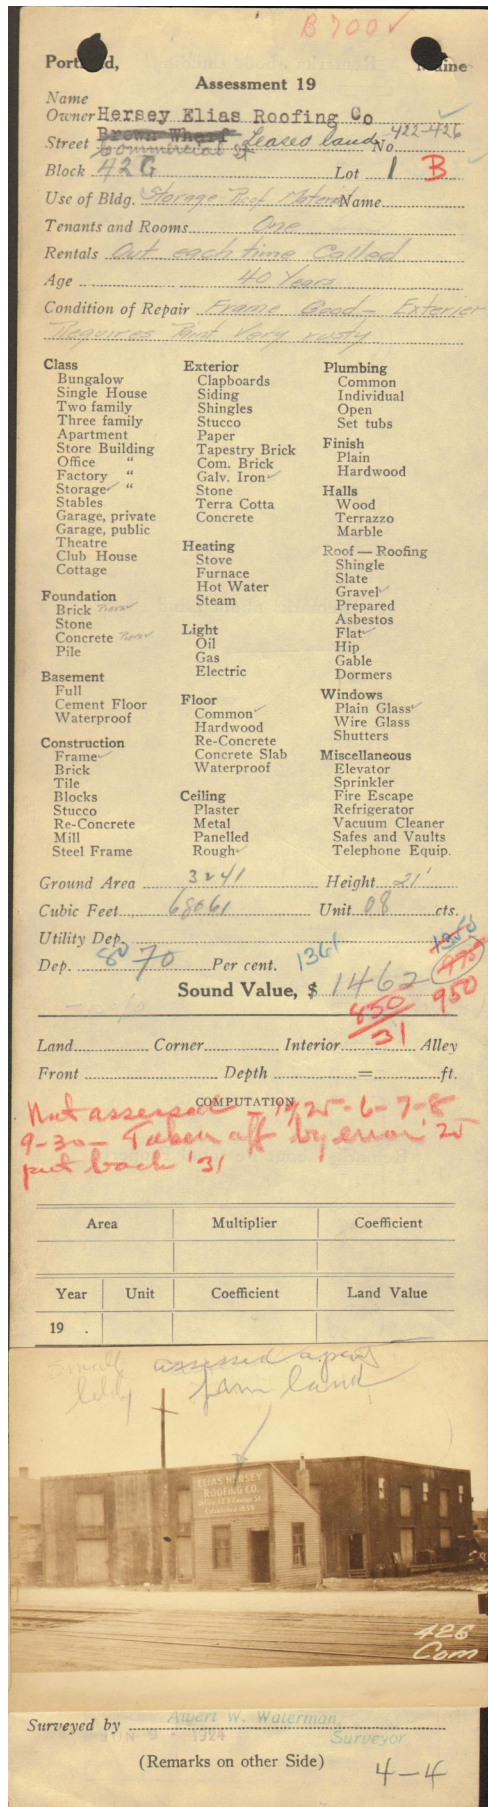 B 700 ✓
Portland, Maine
Assessment 19
Name
Owner Hersey Elias Roofing Co
Brown Wharf
Street Commercial St Leased land No 422-426
Block 42G Lot 1 B
Use of Bldg. Storage Roof Material Name
Tenants and Rooms One
Rentals Out each time Called
Age 40 Years
Condition of Repair Frame Good - Exterior
Requires Paint Very rusty
Class
Bungalow
Single House
Two family
Three family
Apartment
Store Building
Office "
Factory "
Storage ✓ "
Stables
Garage, private
Garage, public
Theatre
Club House
Cottage
Foundation
Brick Piers ✓
Stone
Concrete Piers ✓
Pile
Basement
Full
Cement Floor
Waterproof
Construction
Frame ✓
Brick
Tile
Blocks
Stucco
Re-Concrete
Mill
Steel Frame
Exterior
Clapboards
Siding
Shingles
Stucco
Paper
Tapestry Brick
Com. Brick
Galv. Iron ✓
Stone
Terra Cotta
Concrete
Heating
Stove
Furnace
Hot Water
Steam
Light
Oil
Gas
Electric
Floor
Common ✓
Hardwood
Re-Concrete
Concrete Slab
Waterproof
Ceiling
Plaster
Metal
Panelled
Rough ✓
Plumbing
Common
Individual
Open
Set tubs
Finish
Plain
Hardwood
Halls
Wood
Terrazzo
Marble
Roof — Roofing
Shingle
Slate
Gravel ✓
Prepared
Asbestos
Flat ✓
Hip
Gable
Dormers
Windows
Plain Glass ✓
Wire Glass
Shutters
Miscellaneous
Elevator
Sprinkler
Fire Escape
Refrigerator
Vacuum Cleaner
Safes and Vaults
Telephone Equip.
Ground Area 3241 Height 21'
Cubic Feet 68061 Unit 08 cts.
Utility Dep.
Dep. 80 70 Per cent. 1361
Sound Value, $ 1462 950
850
31
Land Corner Interior Alley
Front Depth = ft.
COMPUTATION
Not assessed - 1925-6-7-8
9-30 - Taken off by error '25
put back '31
Area Multiplier Coefficient
Year Unit Coefficient Land Value
19 .
Small assessed apart
bldg from land
ELIAS HERSEY
ROOFING CO.
Established 1859
426
Com
Surveyed by Albert W. Waterman,
1924 Surveyor
(Remarks on other Side)
4-4